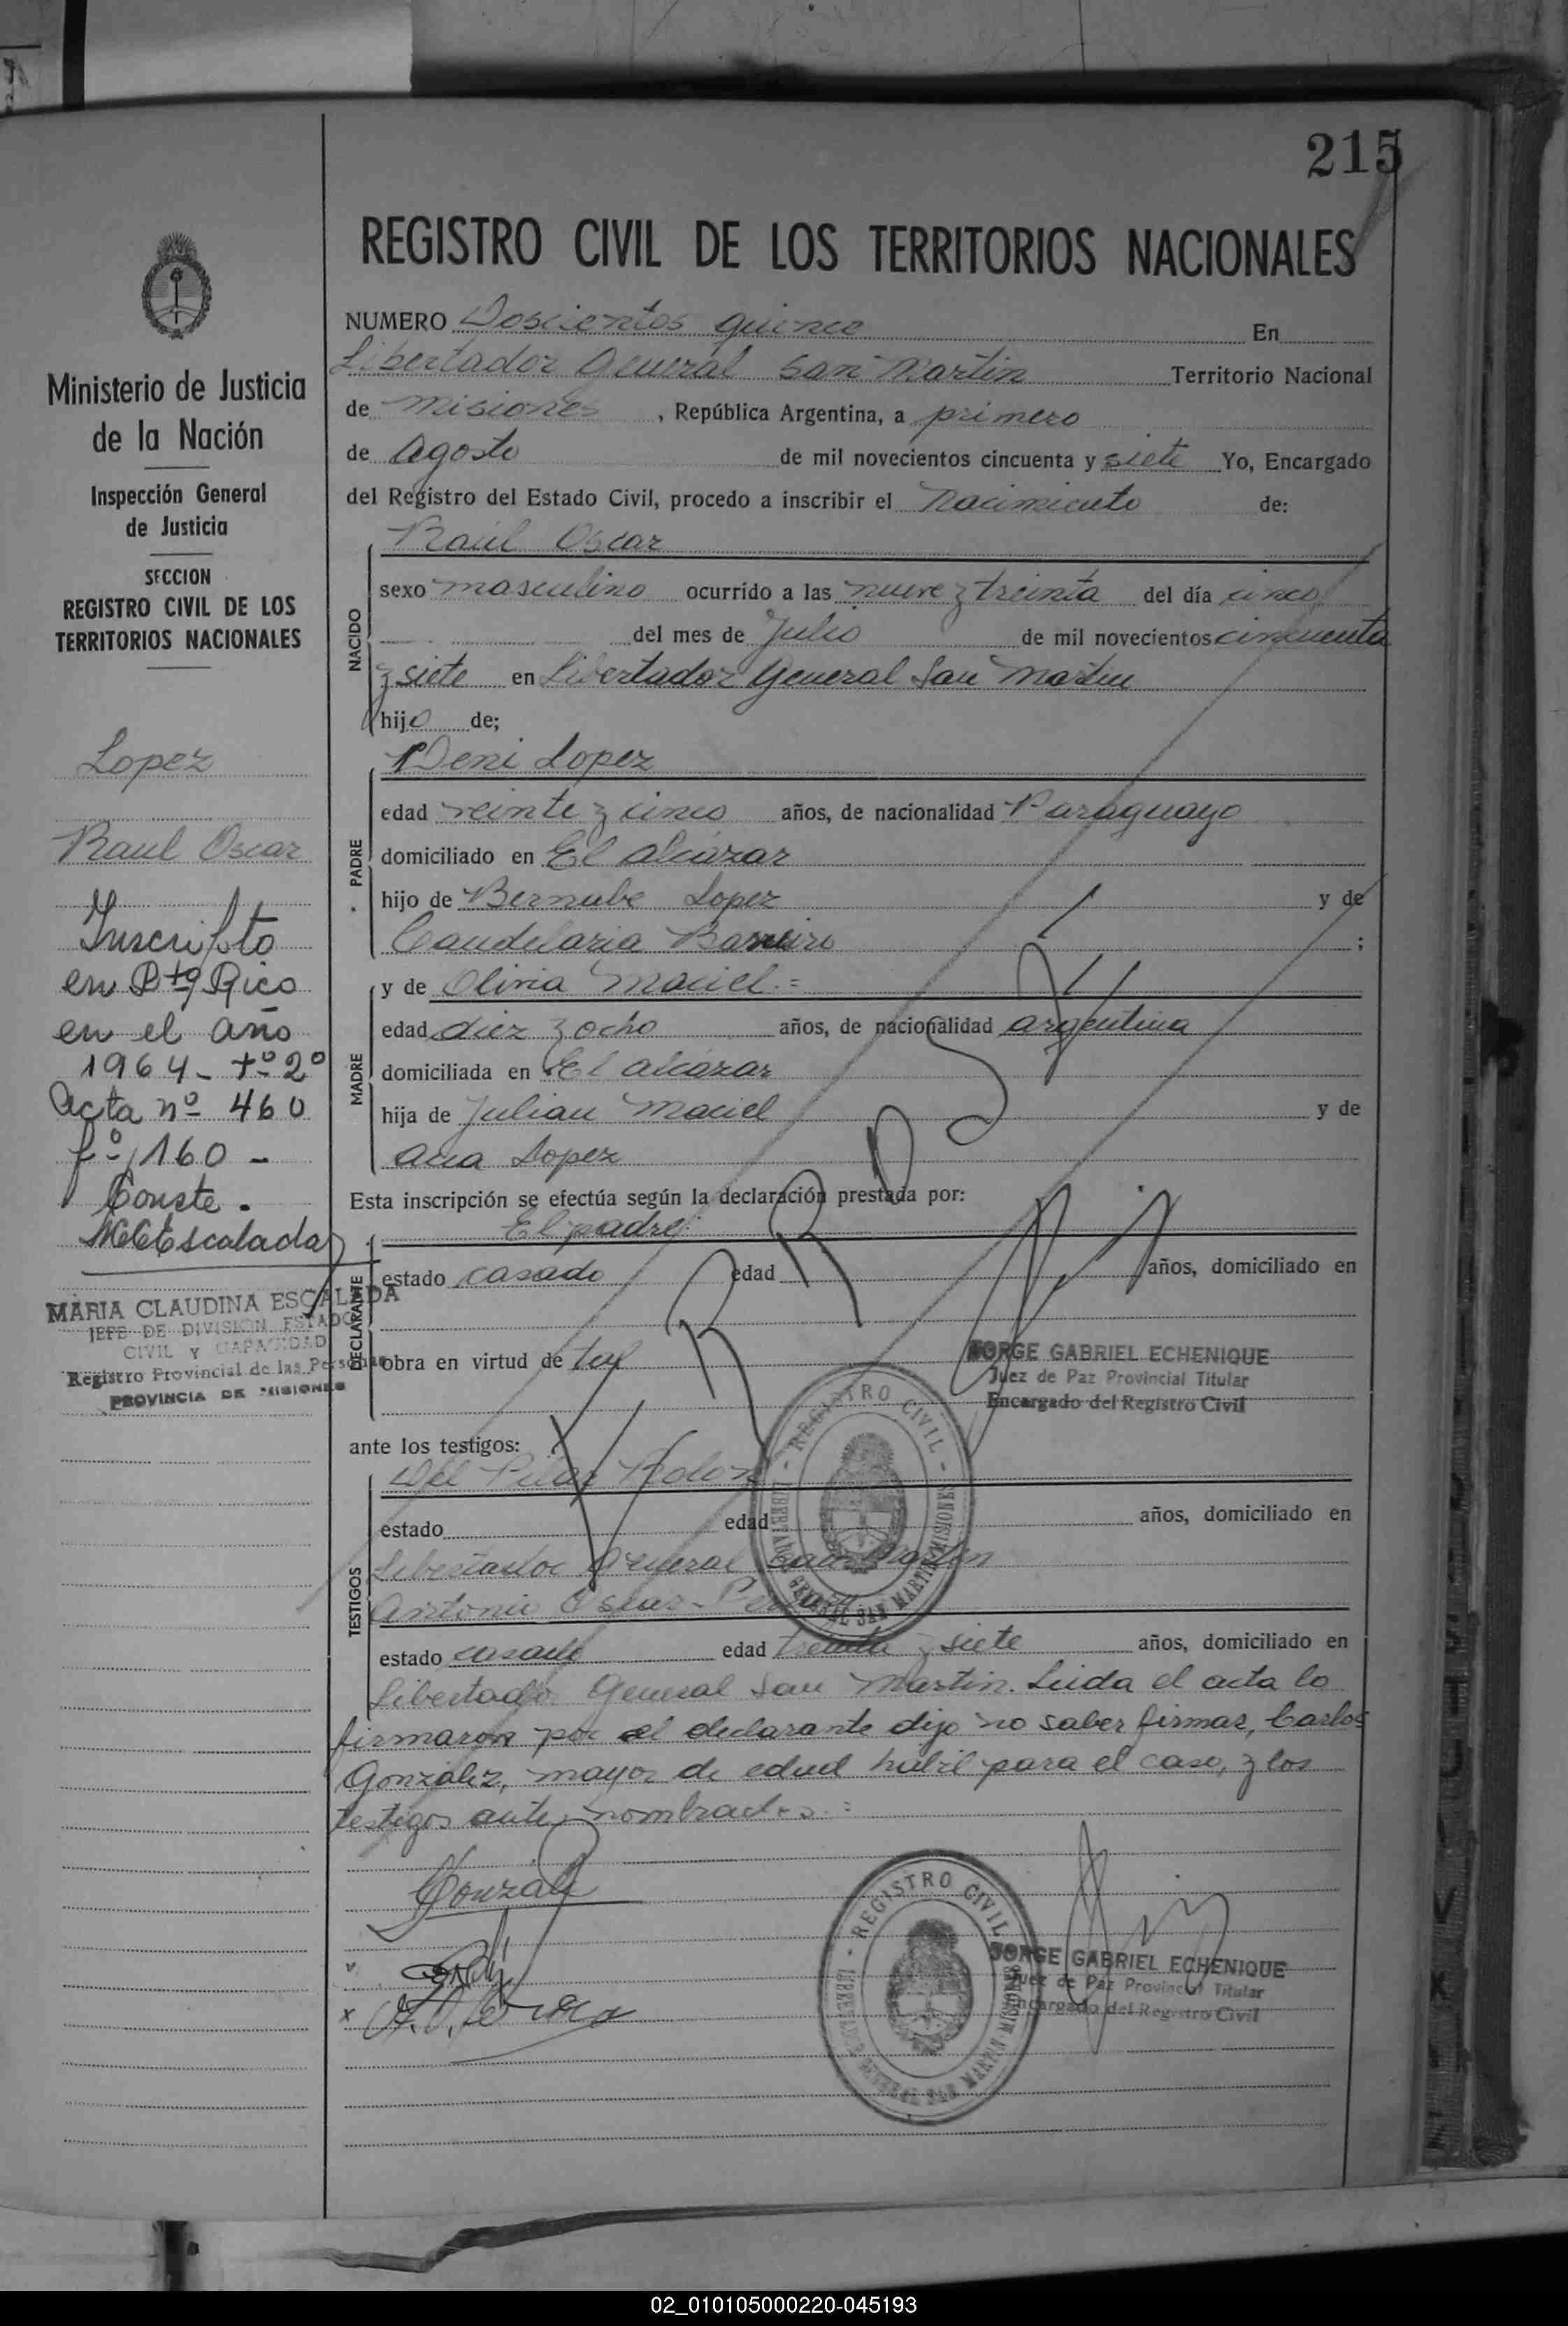 215
REGISTRO CIVIL DE LOS TERRITORIOS NACIONALES
Ministerio de Justicia
de la Nación
Inspección General
de Justicia
SECCION
REGISTRO CIVIL DE LOS
TERRITORIOS NACIONALES
Lopez
Raul Oscar
Inscripto
en Pto Rico
en el año
1964 - tº 2º
Acta nº 460
fº 160 -
Conste.
MCEscalada
MARIA CLAUDINA ESCALADA
JEFE DE DIVISION ESTADO
CIVIL Y CAPACIDAD
Registro Provincial de las Personas
PROVINCIA DE MISIONES
NUMERO Doscientos quince En
Libertador General San Martin Territorio Nacional
de Misiones, República Argentina, a primero
de Agosto de mil novecientos cincuenta y siete Yo, Encargado
del Registro del Estado Civil, procedo a inscribir el Nacimiento de:
NACIDO
Raúl Oscar
sexo masculino ocurrido a las nueve y treinta del día cinco
del mes de Julio de mil novecientos cincuenta
y siete en Libertador General San Martin
hijo de;
PADRE
Deni Lopez
edad veinte y cinco años, de nacionalidad Paraguayo
domiciliado en El Alcázar
hijo de Bernabe Lopez y de
Candelaria ;
MADRE
y de Oliva Maciel.=
edad diez y ocho años, de nacionalidad argentina
domiciliada en El Alcazar
hija de Julian Maciel y de
Ana Lopez
Esta inscripción se efectúa según la declaración prestada por:
DECLARANTE
El padre
estado casado edad años, domiciliado en
obra en virtud de tal
ERROR
JORGE GABRIEL ECHENIQUE
Juez de Paz Provincial Titular
Encargado del Registro Civil
ante los testigos:
TESTIGOS
Del Pilar Rolon
estado edad años, domiciliado en
Libertador General San Martin
REGISTRO CIVIL
LIBERTADOR GENERAL SAN MARTIN MISIONES
Antonio Oscar
estado casado edad treinta y siete años, domiciliado en
Libertador General San Martin. Leida el acta lo
firmaron por el declarante dijo no saber firmar, Carlos
Gonzalez, mayor de edad habil para el caso, y los
testigos ante nombrados.=
Gonzalez
REGISTRO CIVIL
LIBERTADOR GENERAL SAN MARTIN MISIONES
JORGE GABRIEL ECHENIQUE
Juez de Paz Provincial Titular
Encargado del Registro Civil
02_010105000220-045193